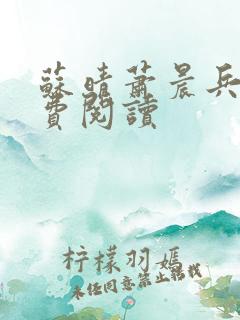 蘇晴蕭晨兵
費閱讀
柠檬羽嫣
未经同意禁止转载